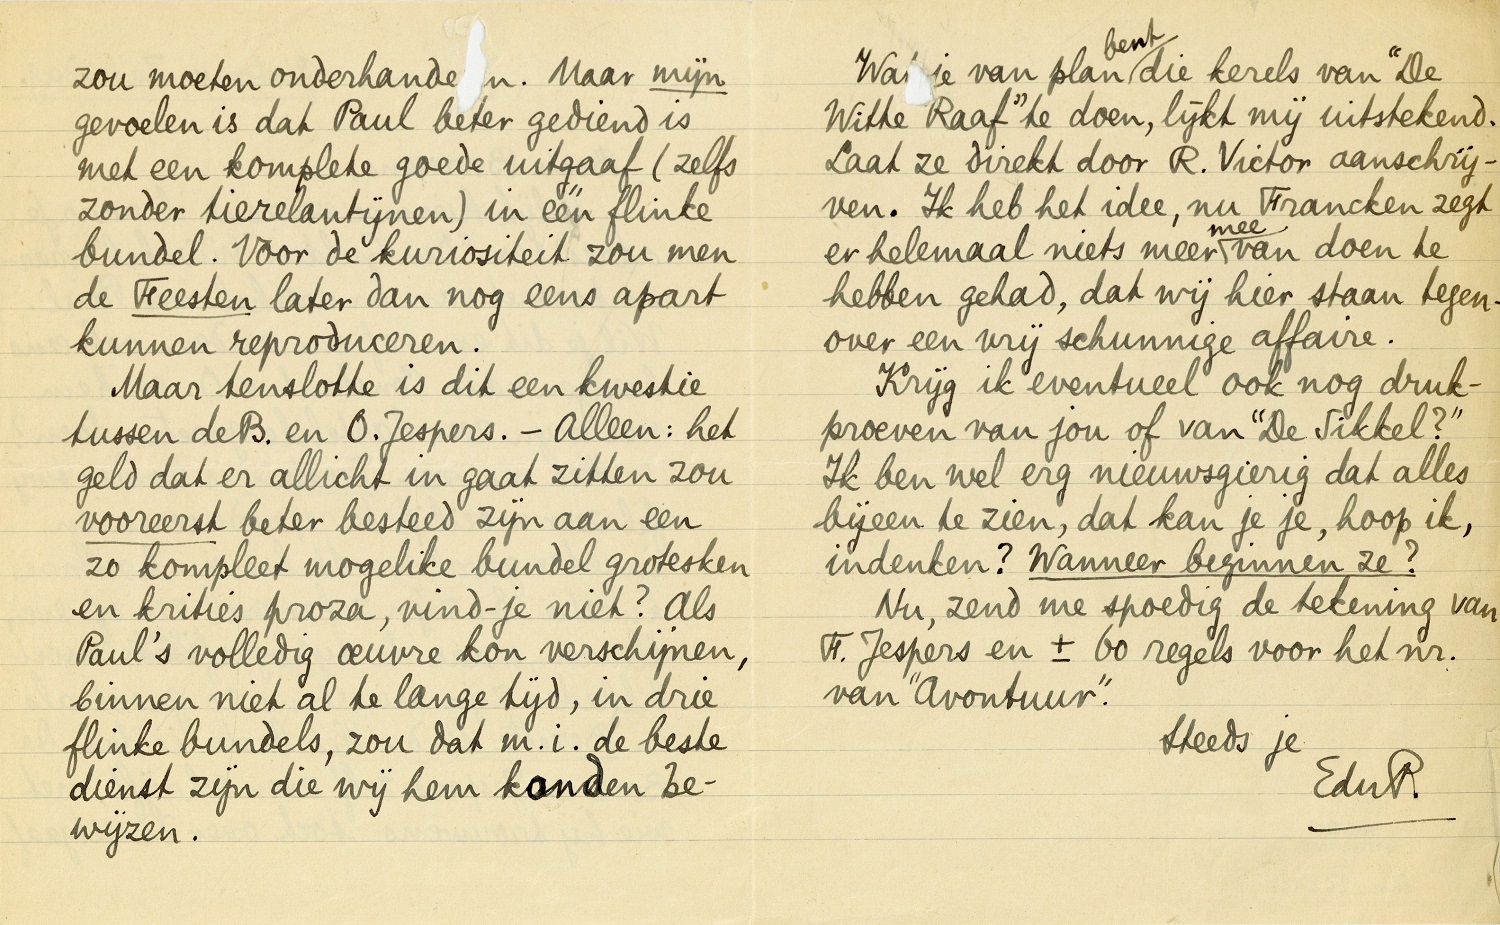 zou moeten onderhande n. Maar mijn
gevoelen is dat Paul beter gediend is
met een komplete goede uitgaaf (zelfs
zonder tierelantijnen) in één flinke
bundel. Voor de kuriositeit zou men
de Feesten later dan nog eens apart
kunnen reproduceren.
Maar tenslotte is dit een kwestie
tussen de B. en O. Jespers. — Alleen: het
geld dat er allicht in gaat zitten zou
vooreerst beter besteed zijn aan een
zo kompleet mogelike bundel grotesken
en kritiés proza, vind-je niet? Als
Paul's volledig œuvre kon verschijnen,
binnen niet al te lange tijd, in drie
flinke bundels, zou dat m.i. de beste
dienst zijn die wij hem konden be-
wijzen.
Wat je van plan bent die kerels van "De
Witte Raaf" te doen, lijkt mij uitstekend.
Laat ze direkt door R. Victor aanschrij-
ven. Ik heb het idee, nu Francken zegt
er helemaal niets meer mee van doen te
hebben gehad, dat wij hier staan tegen-
over een vrij schunnige affaire.
Krijg ik eventueel ook nog druk-
proeven van jou of van "De Sikkel?"
Ik ben wel erg nieuwsgierig dat alles
bijeen te zien, dat kan je je, hoop ik,
indenken? Wanneer beginnen ze?
Nu, zend me spoedig de tekening van
F. Jespers en ± 60 regels voor het nr.
van "Avontuur".
Steeds je
EduP.